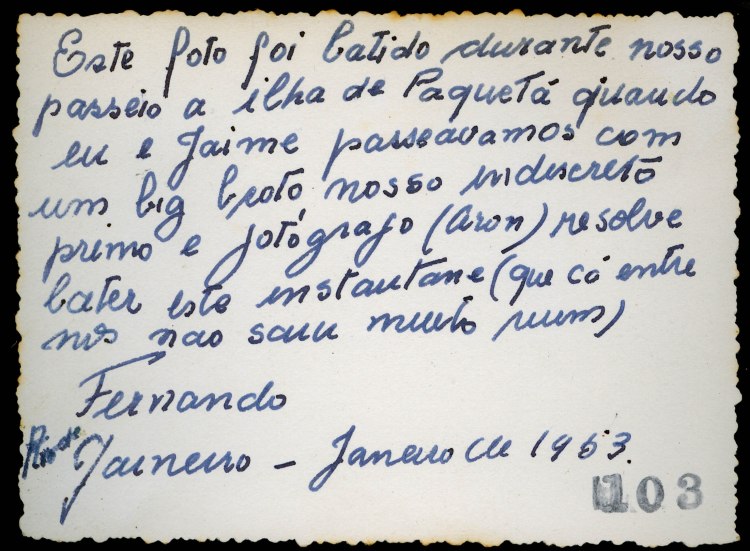 Este foto foi batido durante nosso
passeio a ilha de Paquetá quando
eu e Jaime passeavamos com
um big broto nosso indiscreto
primo e fotógrafo (Aron) resolve
bater este instantane (que cá entre
nos nao saiu muito ruim)
Fernando
Rio de Janeiro - Janeiro de 1953.
103